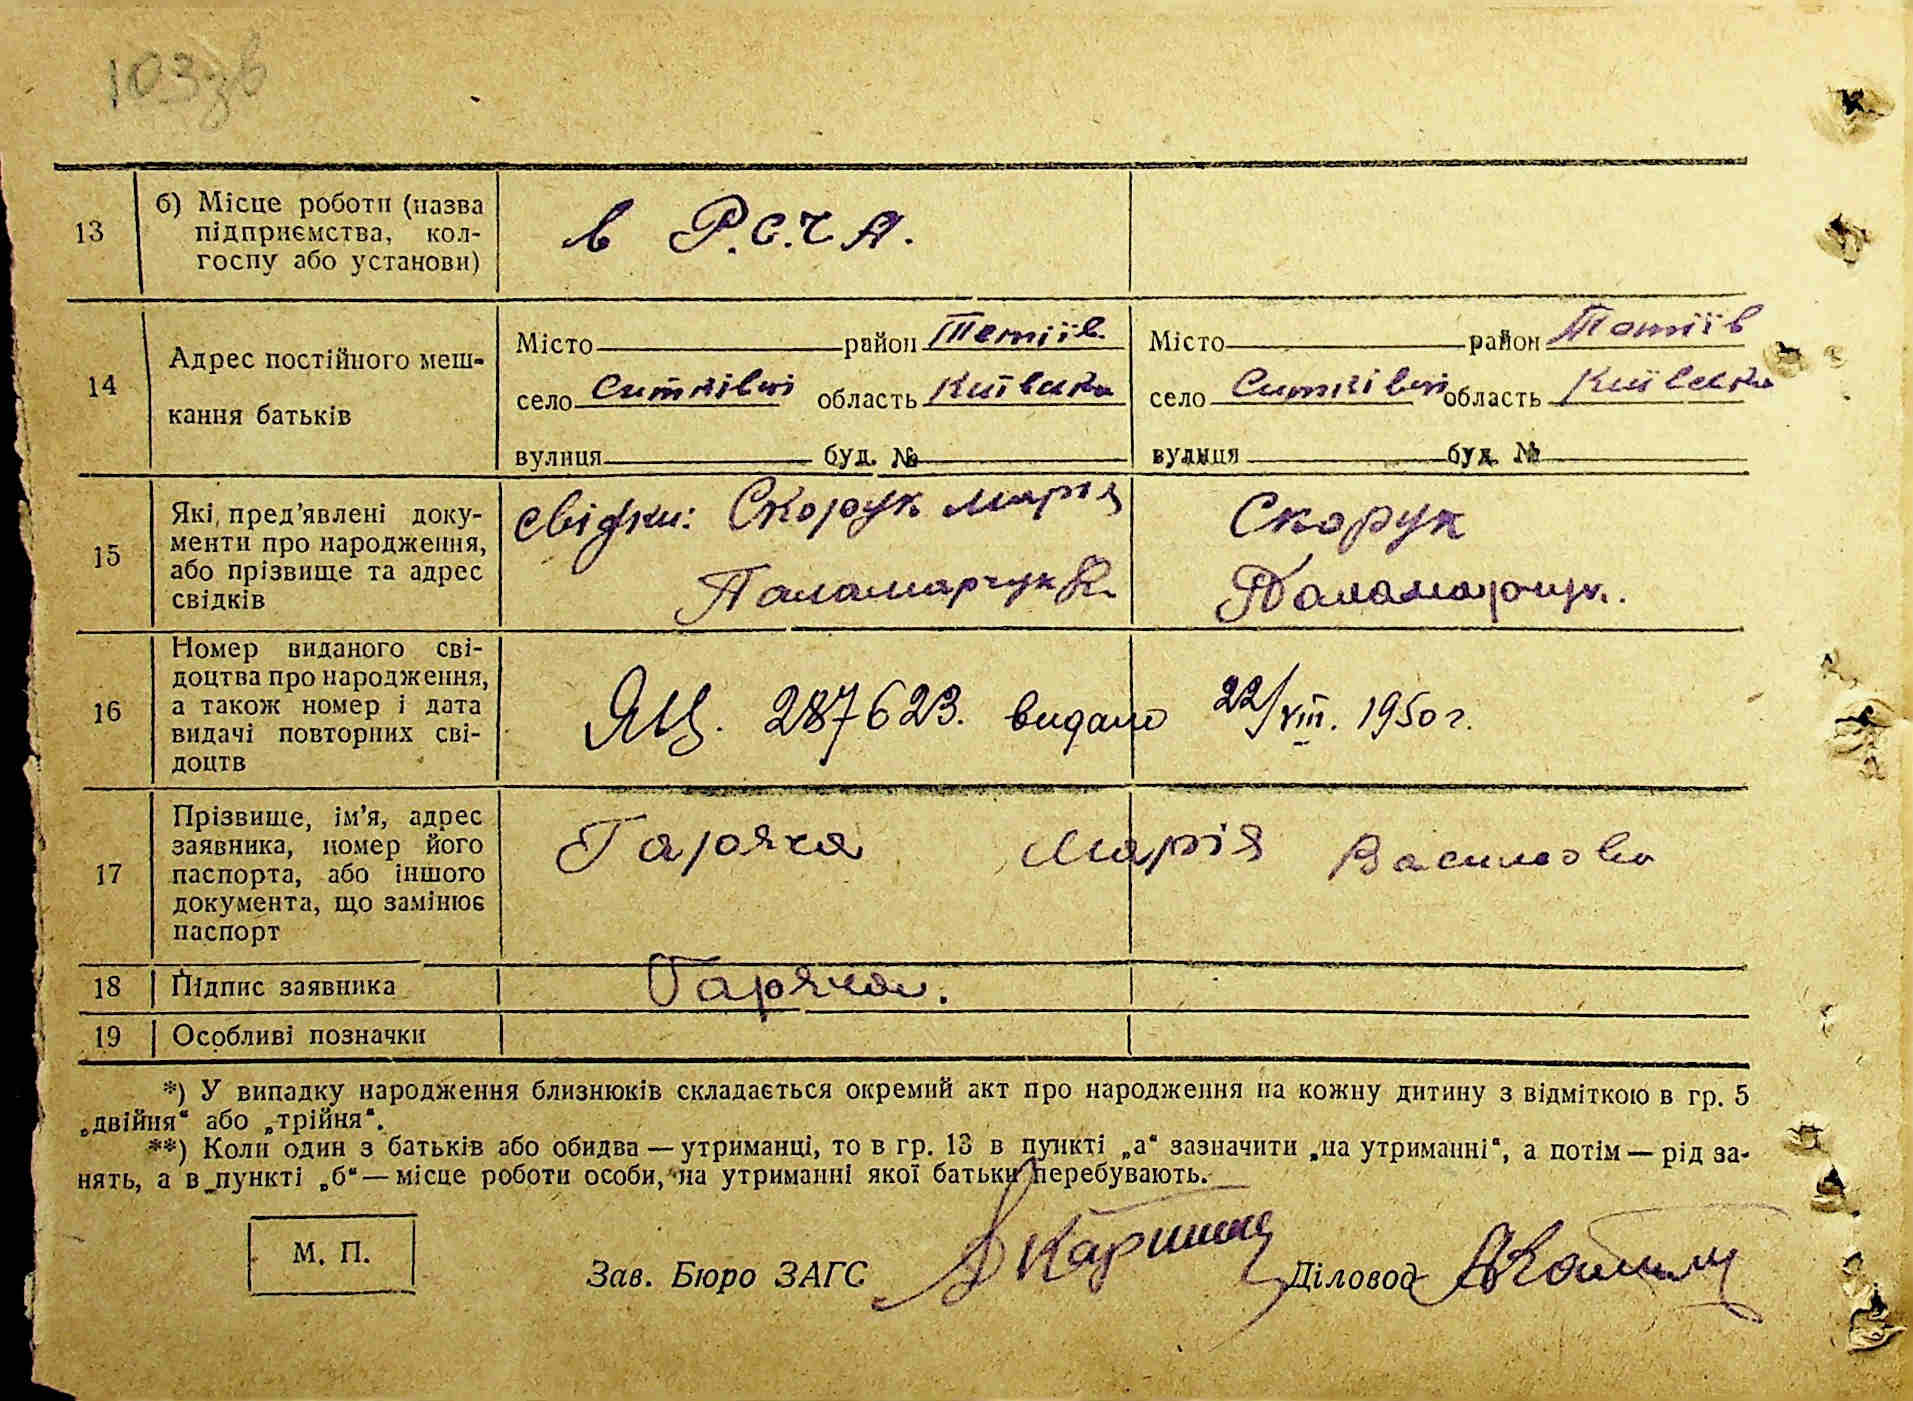 103зв
13
б) Місце роботи (назва
підприємства, кол-
госпу або установи)
в Р.С.Ч.А.
14
Адрес постійного меш-
кання батьків
Місто район Тетіїв.
село область Київська
вулиця буд. №
Місто район Тетіїв
село область Київська
вулиця буд. №
15
Які пред’явлені доку-
менти про народження,
або прізвище та адрес
свідків
свідки: Скорук Марія
Паламарчук
Скорук
Паламарчук.
16
Номер виданого сві-
доцтва про народження,
а також номер і дата
видачі повторних сві-
доцтв
ЯЦ. 287623. видано 22/VIII. 1950 г.
17
Прізвище, ім’я, адрес
заявника, номер його
паспорта, або іншого
документа, що замінює
паспорт
Гаряча Марія Василівна
18
Підпис заявника
Гаряча.
19
Особливі позначки
*) У випадку народження близнюків складається окремий акт про народження на кожну дитину з відміткою в гр. 5
„двійня“ або „трійня“.
**) Коли один з батьків або обидва — утриманці, то в гр. 13 в пункті „а“ зазначити „на утриманні“, а потім — рід за-
нять, а в пункті „б“ — місце роботи особи, на утриманні якої батьки перебувають.
М. П.
Зав. Бюро ЗАГС
Діловод